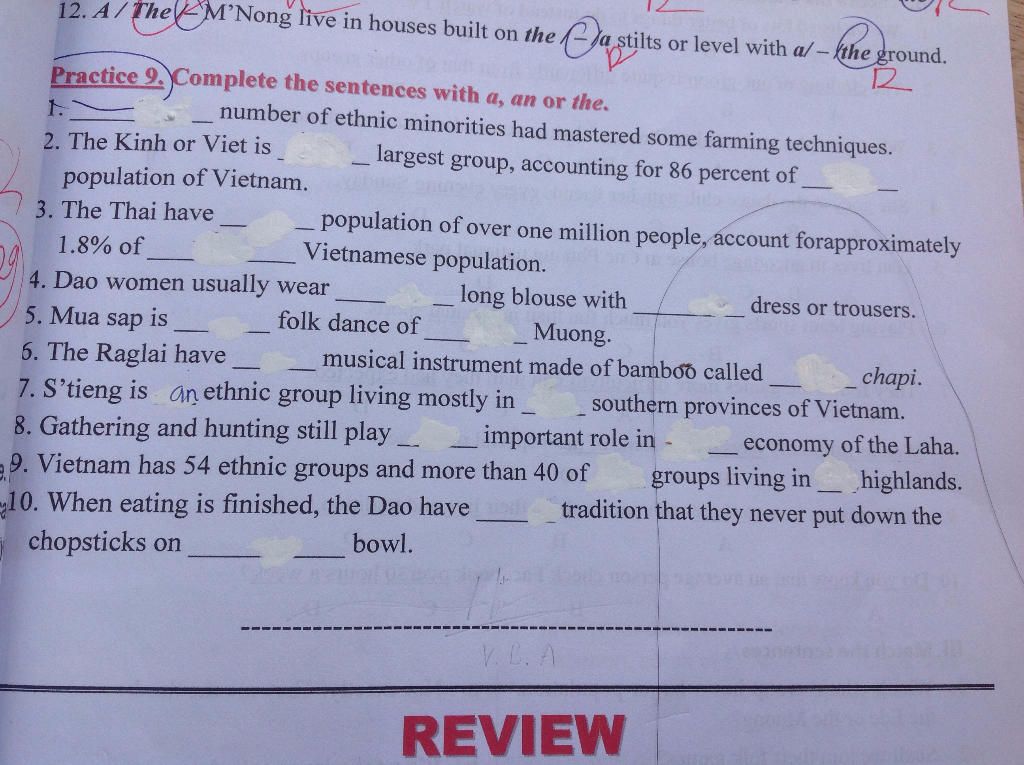 12. A / The / – M'Nong live in houses built on the / – / a stilts or level with a/ – /the ground.
Practice 9. Complete the sentences with a, an or the.
1. ______ number of ethnic minorities had mastered some farming techniques.
2. The Kinh or Viet is ______ largest group, accounting for 86 percent of ______
population of Vietnam.
3. The Thai have ______ population of over one million people, account forapproximately
1.8% of ______ Vietnamese population.
4. Dao women usually wear ______ long blouse with ______ dress or trousers.
5. Mua sap is ______ folk dance of ______ Muong.
6. The Raglai have ______ musical instrument made of bamboo called ______ chapi.
7. S'tieng is an ethnic group living mostly in ______ southern provinces of Vietnam.
8. Gathering and hunting still play ______ important role in ______ economy of the Laha.
9. Vietnam has 54 ethnic groups and more than 40 of ______ groups living in ______ highlands.
10. When eating is finished, the Dao have ______ tradition that they never put down the
chopsticks on ______ bowl.
V. B. A
REVIEW